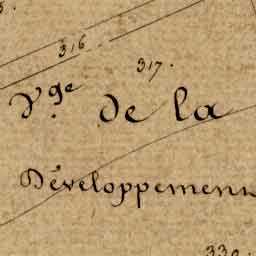 316
317.
Vge de la
Développemen
330